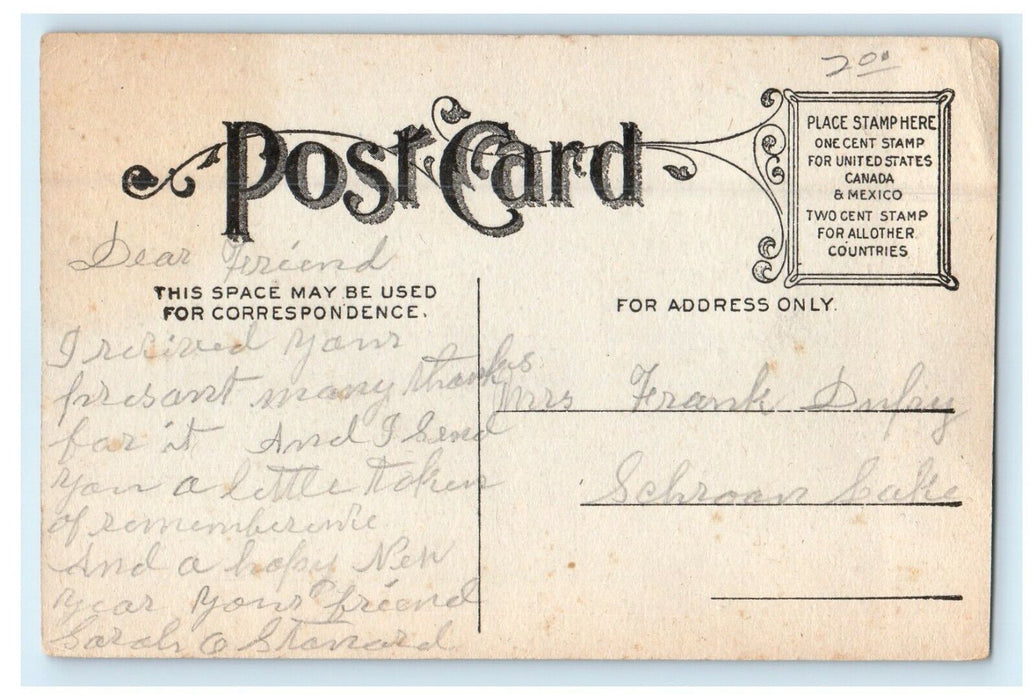 2.00
Post Card
PLACE STAMP HERE
ONE CENT STAMP
FOR UNITED STATES
CANADA
& MEXICO
TWO CENT STAMP
FOR ALL OTHER
COUNTRIES
Dear Friend
THIS SPACE MAY BE USED
FOR CORRESPONDENCE.
I recived your
presant many thanks
for it And I Send
you a little token
of rememberence
And a hapy New
year your friend
Sarah O Stanard
FOR ADDRESS ONLY.
Mrs Frank Dupry
Schroon Lake